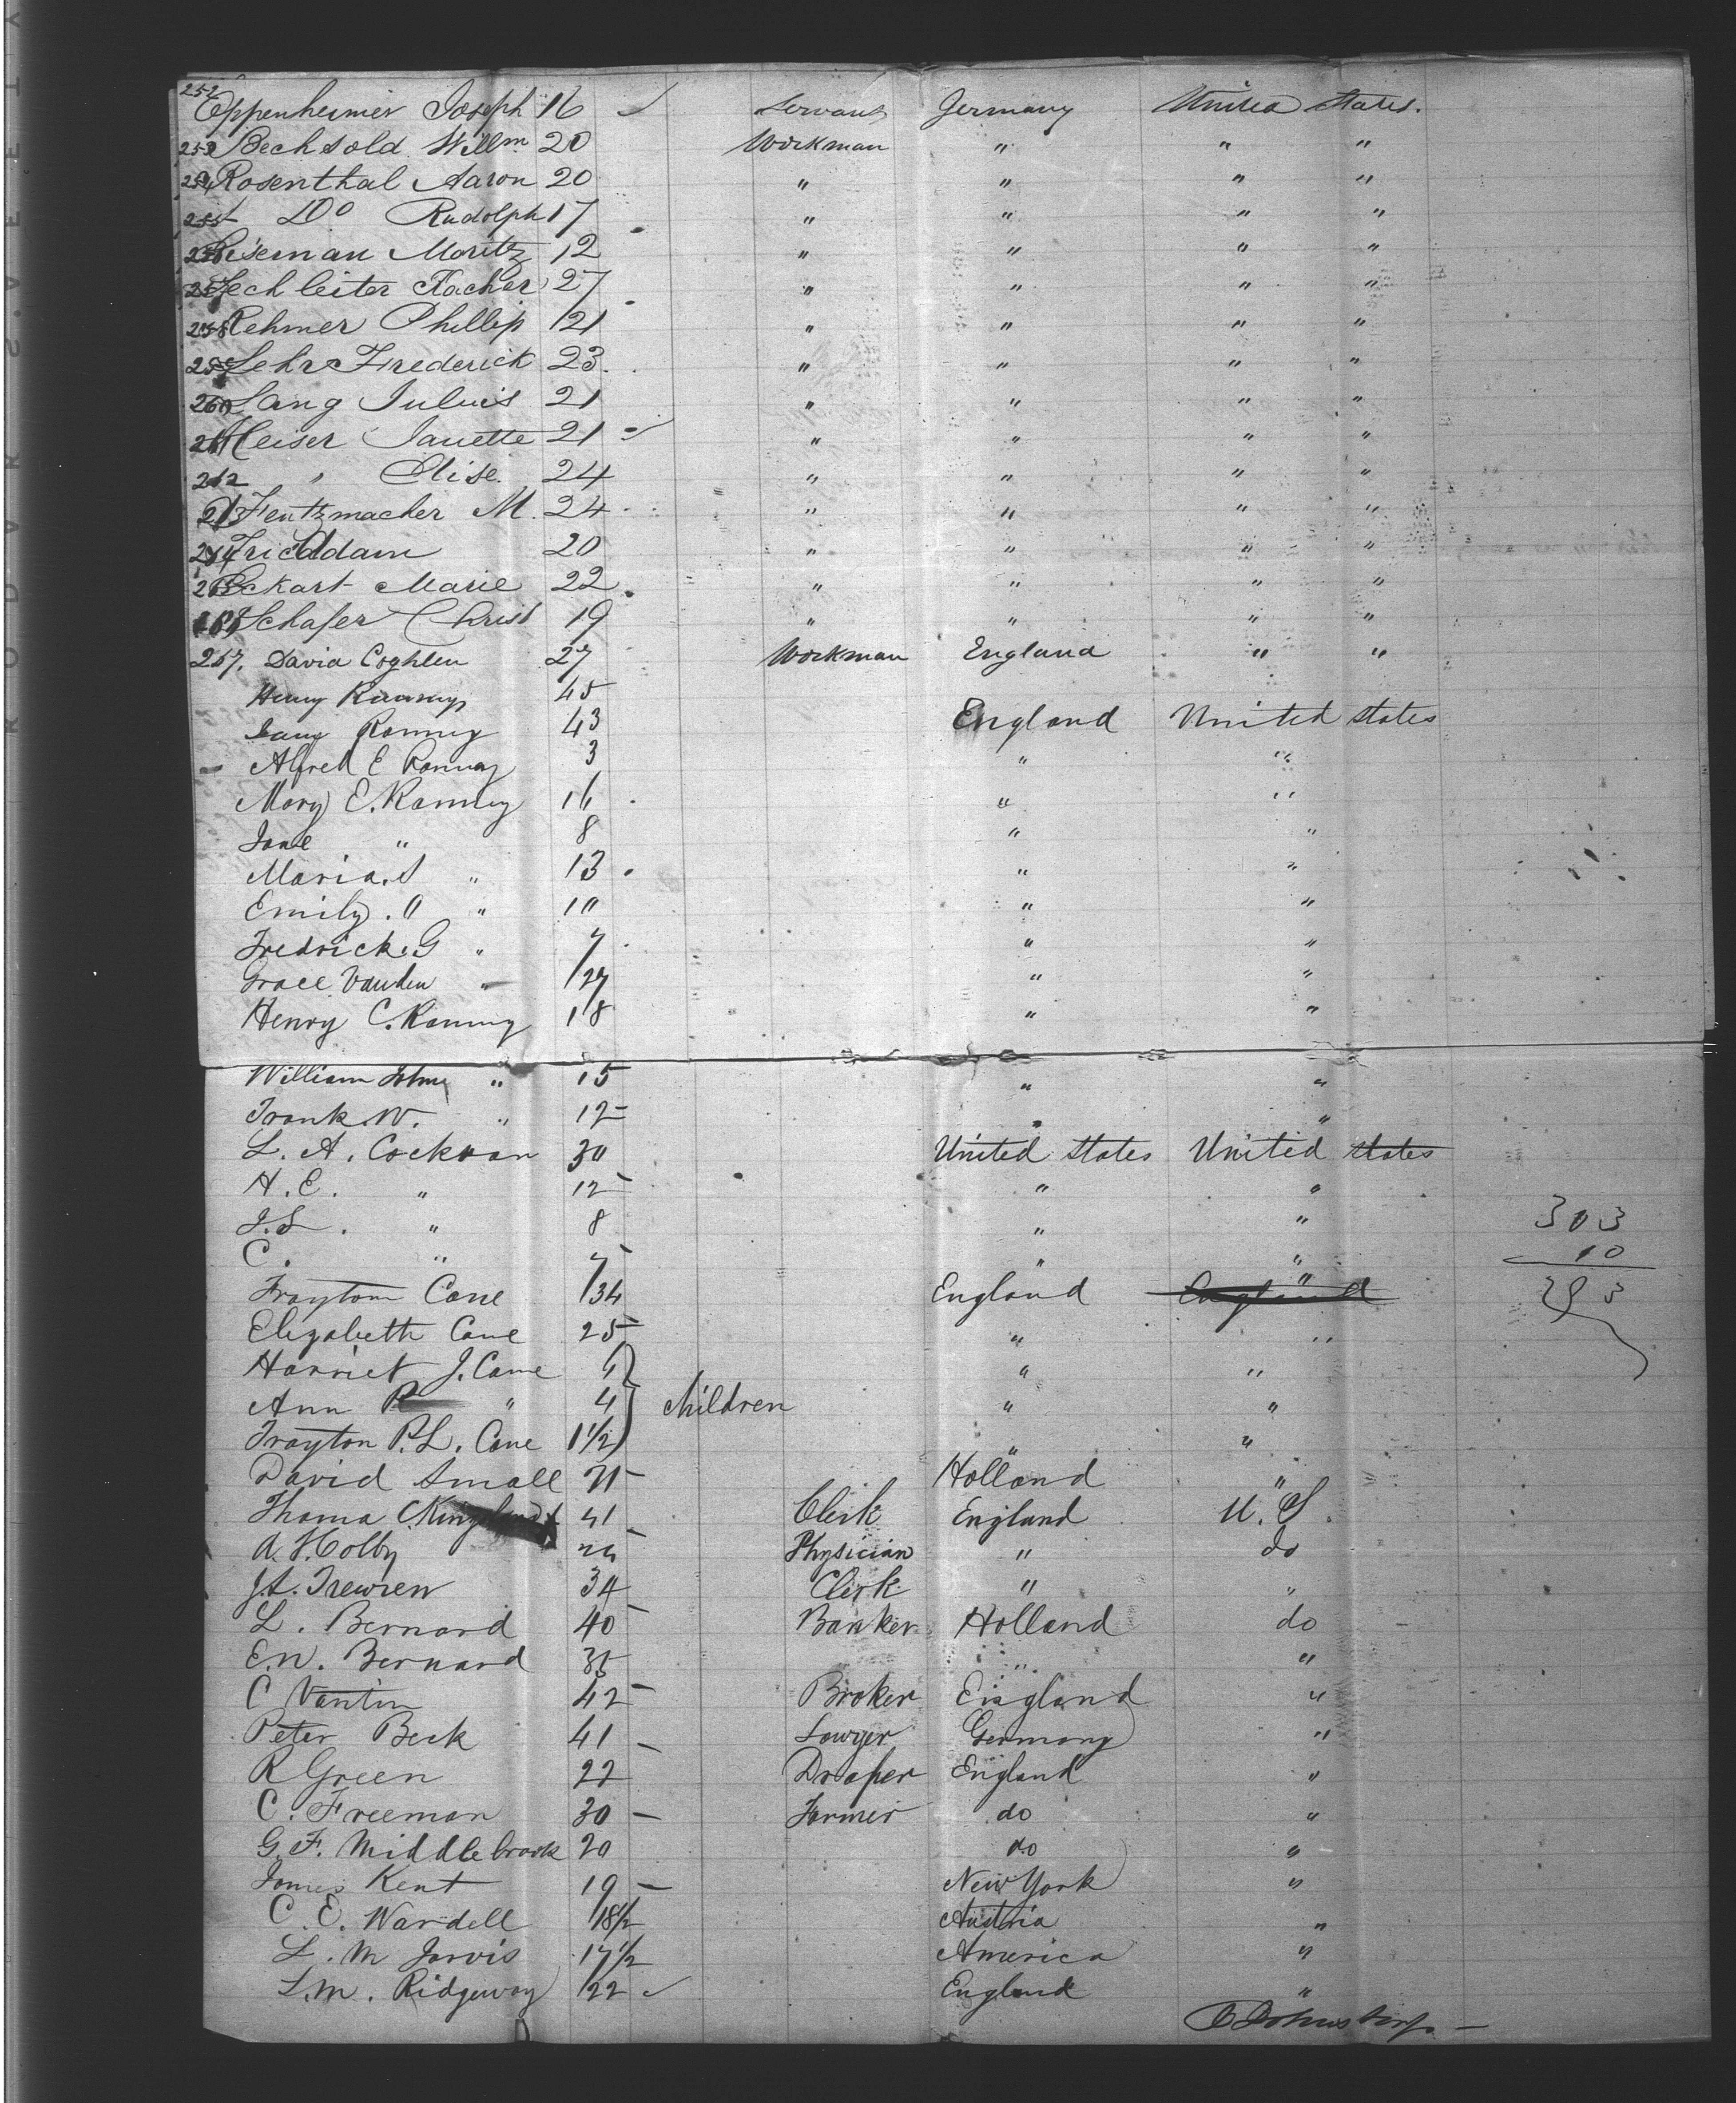 252 Oppenheimer Joseph 16 Servant Germany United States.
253 Bechtold Willm 20 Workman " " "
254 Rosenthal Aaron 20 " " " "
255 Do Rudolph 17 " " " "
256 Eiseman Moritz 12 " " " "
257 Fechleiter 27 " " " "
258 Rehmer Phillip 21 " " " "
259 Lehr Frederick 23 " " " "
260 Lang Julius 21 " " " "
261 Heiser Janette 21 " " " "
262 " Elise. 24 " " " "
263 Fentzmacher M. 24 " " " "
264 Fric Adam 20 " " " "
265 Eckart Marie 22 " " " "
Schafer Christ 19 " " " "
267. David Coghlen 27 Workman England " "
Henry 45
43 England United States
Alfred E 3 " "
Mary E. Ramney 16 " "
Jane " 8 " "
Maria. S " 13 " "
Emily. " 10 " "
Fredrick. G " 7 " "
Grace " 27 " "
Henry C. 18 " "
William " 15 " "
Frank W. " 12 " "
L. A. Cockran 30 United States United States
H. E. " 12 " "
J. S. " 8 " " 303
C. " 7 " " 10
Frayton Cane 34 England England " 293
Elizabeth Cane 25 " "
Harriet J. Cane 6 " "
Ann R " 4 Children " "
Frayton P. L. Cane 1 1/2 " "
David Small 21 Holland "
Thoma C. Kingsland 41 Clerk England U. S.
A. H. Colby 26 Physician " do
J. L. Trewren 34 Clerk " "
L. Bernard 40 Banker Holland do
E. N. Bernard 35 " "
C Vantin 42 Broker England "
Peter Beck 41 Lawyer Germany "
R Green 22 Draper England "
C. Freeman 30 Farmer do "
G. F. Middlebrook 20 do "
James Kent 19 New York "
C. E. Wardell 18 1/2 Austria "
L. M Jarvis 17 1/2 America "
L. M. Ridgeway 22 England "